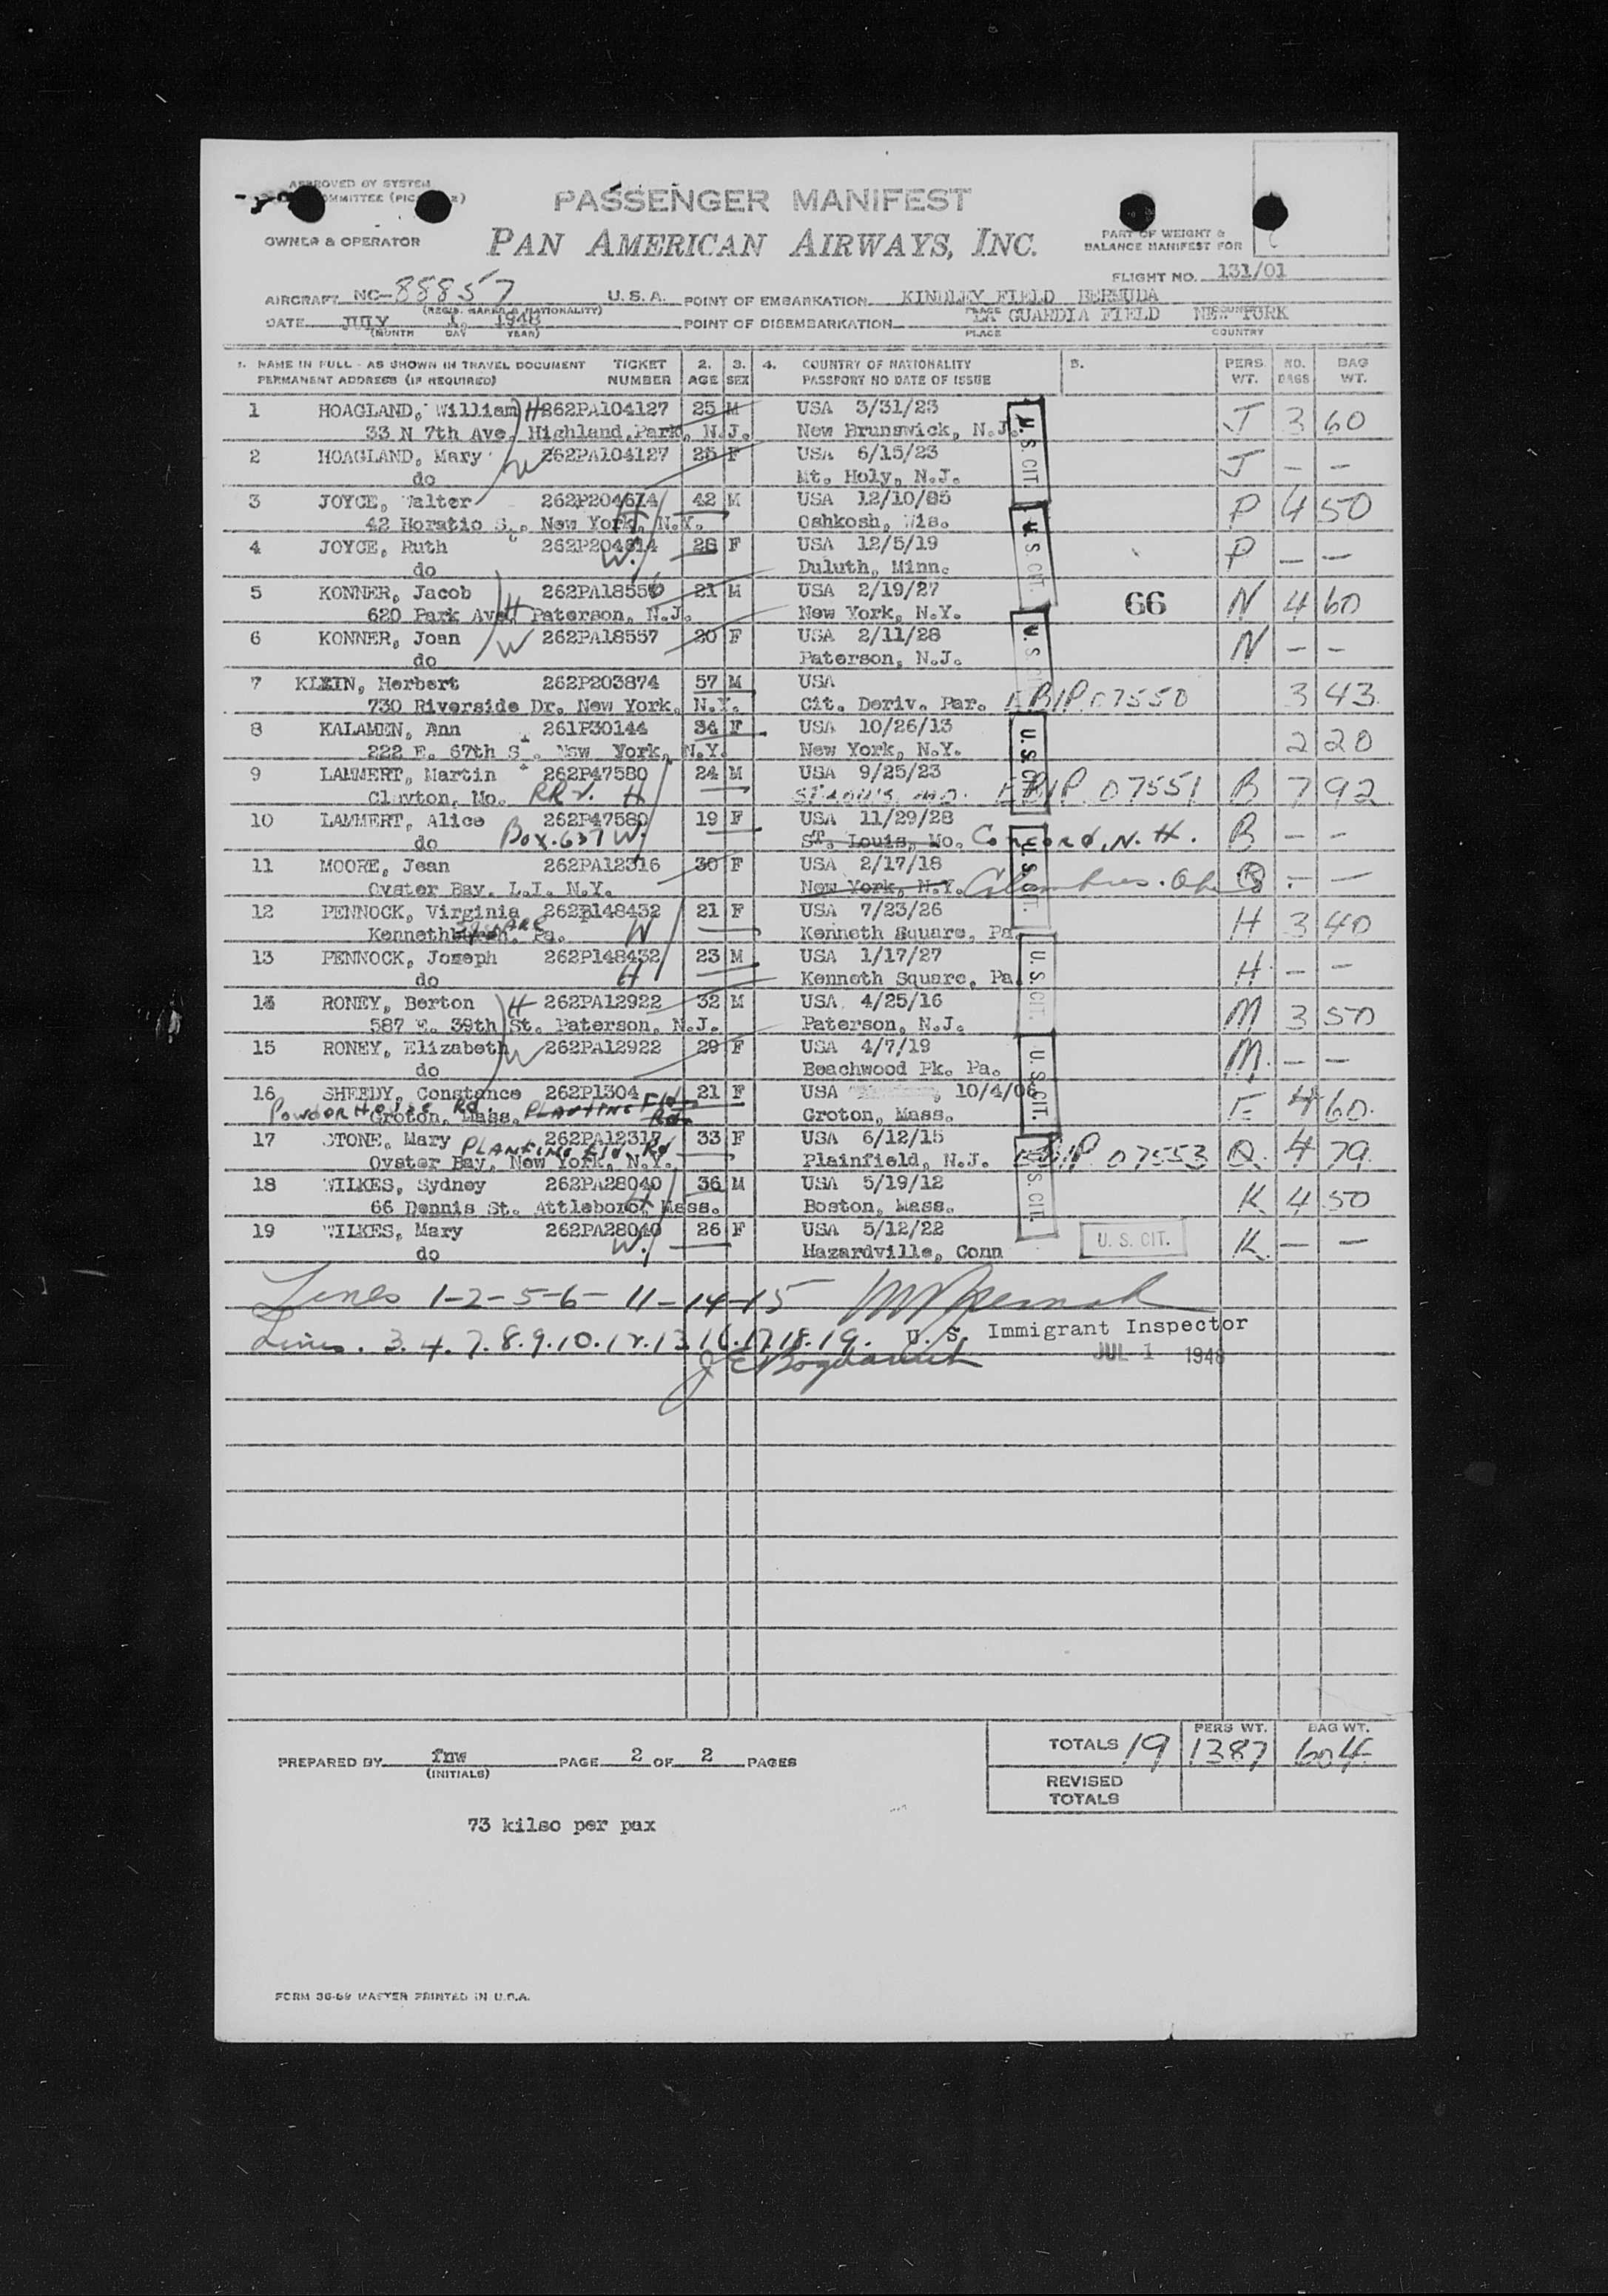 APPROVED BY SYSTEM
PASSENGER MANIFEST
OWNER & OPERATOR PAN AMERICAN AIRWAYS, INC. PART OF WEIGHT & BALANCE MANIFEST FOR
FLIGHT NO. 131/01
AIRCRAFT NC-88857 U.S.A. POINT OF EMBARKATION KINDLEY FIELD BERMUDA
DATE JULY 1, 1948 POINT OF DISEMBARKATION LA GUARDIA FIELD NEW YORK
(MONTH DAY YEAR) PLACE COUNTRY
1. NAME IN FULL - AS SHOWN IN TRAVEL DOCUMENT TICKET 2. 3. 4. COUNTRY OF NATIONALITY 5. PERS NO. BAG
PERMANENT ADDRESS (IF REQUIRED) NUMBER AGE SEX PASSPORT NO DATE OF ISSUE WT. BAGS WT.
1 HOAGLAND, William H 262PA104127 25 M USA 3/31/23 J 3 60
33 N 7th Ave, Highland Park, N.J. New Brunswick, N.J. U. S. CIT.
2 HOAGLAND, Mary W 262PA104127 25 F USA 6/15/23 J - -
do Mt. Holy, N.J.
3 JOYCE, Walter 262P204614 42 M USA 12/10/05 P 4 50
42 Horatio S. New York, N.Y. H Oshkosh, Wis. U. S. CIT.
4 JOYCE, Ruth 262P204614 28 F USA 12/5/19 P - -
do W. Duluth, Minn.
5 KONNER, Jacob 262PA18556 21 M USA 2/19/27 66 N 4 60
620 Park Ave, H Paterson, N.J. New York, N.Y.
6 KONNER, Joan W 262PA18557 20 F USA 2/11/28 N - -
do Paterson, N.J.
7 KLEIN, Herbert 262P203874 57 M USA 3 43
730 Riverside Dr. New York, N.Y. Cit. Deriv. Par. BIP 07550
8 KALAMEN, Ann 261P30144 34 F USA 10/26/13 2 20
222 E. 67th St. New York, N.Y. New York, N.Y. U. S. CIT.
9 LAMMERT, Martin 262P47580 24 M USA 9/25/23 B 7 92
Clayton, Mo. RR 2. H St. Louis, Mo. BIP 07551
10 LAMMERT, Alice 262P47580 19 F USA 11/29/28 B - -
do Box.637 W. St. Louis, Mo. Concord, N. H. U. S. CIT.
11 MOORE, Jean 262PA12316 30 F USA 2/17/18 - -
Oyster Bay, L.I. N.Y. New York, N.Y. Columbus. Ohio
12 PENNOCK, Virginia 262P148432 21 F USA 7/23/26 H 3 40
Kenneth SQUARE Pa. W Kenneth Square, Pa.
13 PENNOCK, Joseph 262P148432 23 M USA 1/17/27 H - -
do H Kenneth Square, Pa. U. S. CIT.
14 RONEY, Berton H 262PA12922 32 M USA 4/25/16 M 3 50
587 E. 39th St. Paterson, N.J. Paterson, N.J.
15 RONEY, Elizabeth W 262PA12922 29 F USA 4/7/19 M - -
do Beachwood Pk. Pa. U. S. CIT.
16 SHEEDY, Constance 262P1304 21 F USA 10/4/06 E 4 60
POWDER HOUSE Rd, Groton, Mass. PLANTING Fld Rd Groton, Mass.
17 STONE, Mary 262PA12317 33 F USA 6/12/15 Q 4 79
PLANTING Fld. Rd
Oyster Bay, New York, N.Y. Plainfield, N.J. BIP 07553
18 WILKES, Sydney 262PA28040 36 M USA 5/19/12 K 4 50
66 Dennis St. Attleboro, Mass. H Boston, Mass. U. S. CIT.
19 WILKES, Mary 262PA28040 26 F USA 5/12/22 K - -
do W. Hazardville, Conn U. S. CIT.
Lines 1-2-5-6-11-14-15
Lines. 3.4.7.8.9.10.12.13.16.17.18.19. U. S. Immigrant Inspector
JUL 1 1948
TOTALS 19 PERS WT. 1387 BAG WT. 604
PREPARED BY fnw PAGE 2 OF 2 PAGES
(INITIALS)
REVISED TOTALS
73 kilso per pax
FORM 36-59 MASTER PRINTED IN U.S.A.